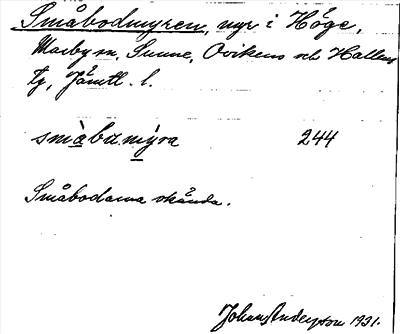 Småbodmyren, myr i Höge,
Marby sn, Sunne, Ovikens och Hallens
tg, Jämtl. l.
småbumýra 244
Småbodarna okända.
Johans Anderson 1931.